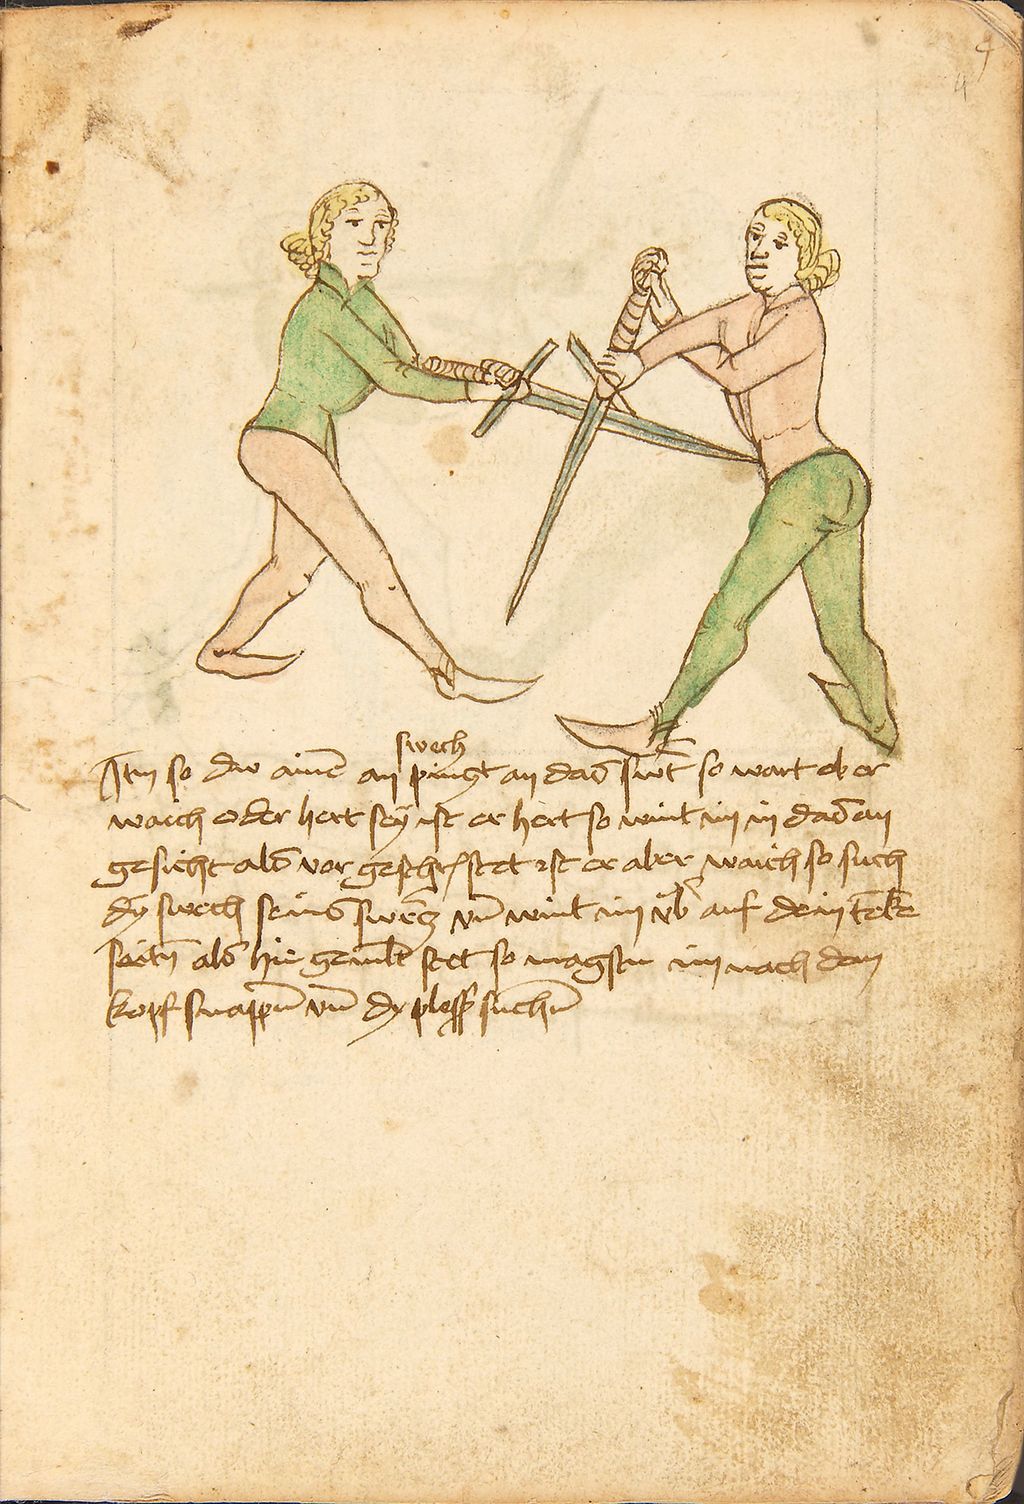 4
4
swech
Itm so dw ainē an pingt an das swt so wart ob er
waich oder hert sey ist er hert so wint im in das an
gesicht als vor geschr stet ist er aber waich so such
dy swech seins swercz vn̄ wint im vb̄ auf dein
seitn̄ als hie gemlt stet so magstu im nach dem
kopf snappn̄ vn̄ dy pless suchn̄